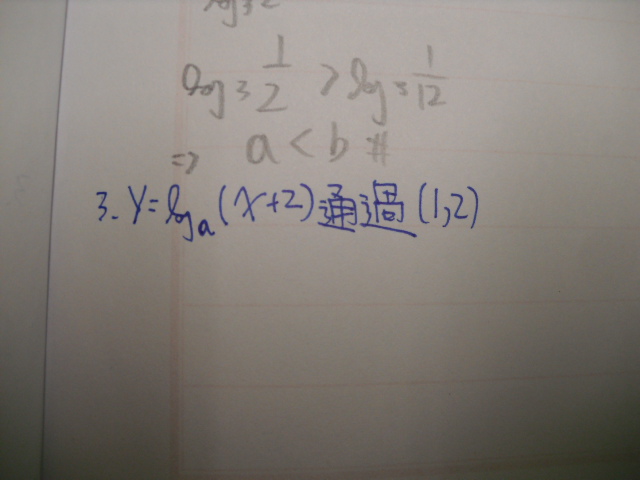 log₃ 1/2 > log₃ 1/12
⇒ a < b #
3. Y=logₐ(x+2)通過(1,2)